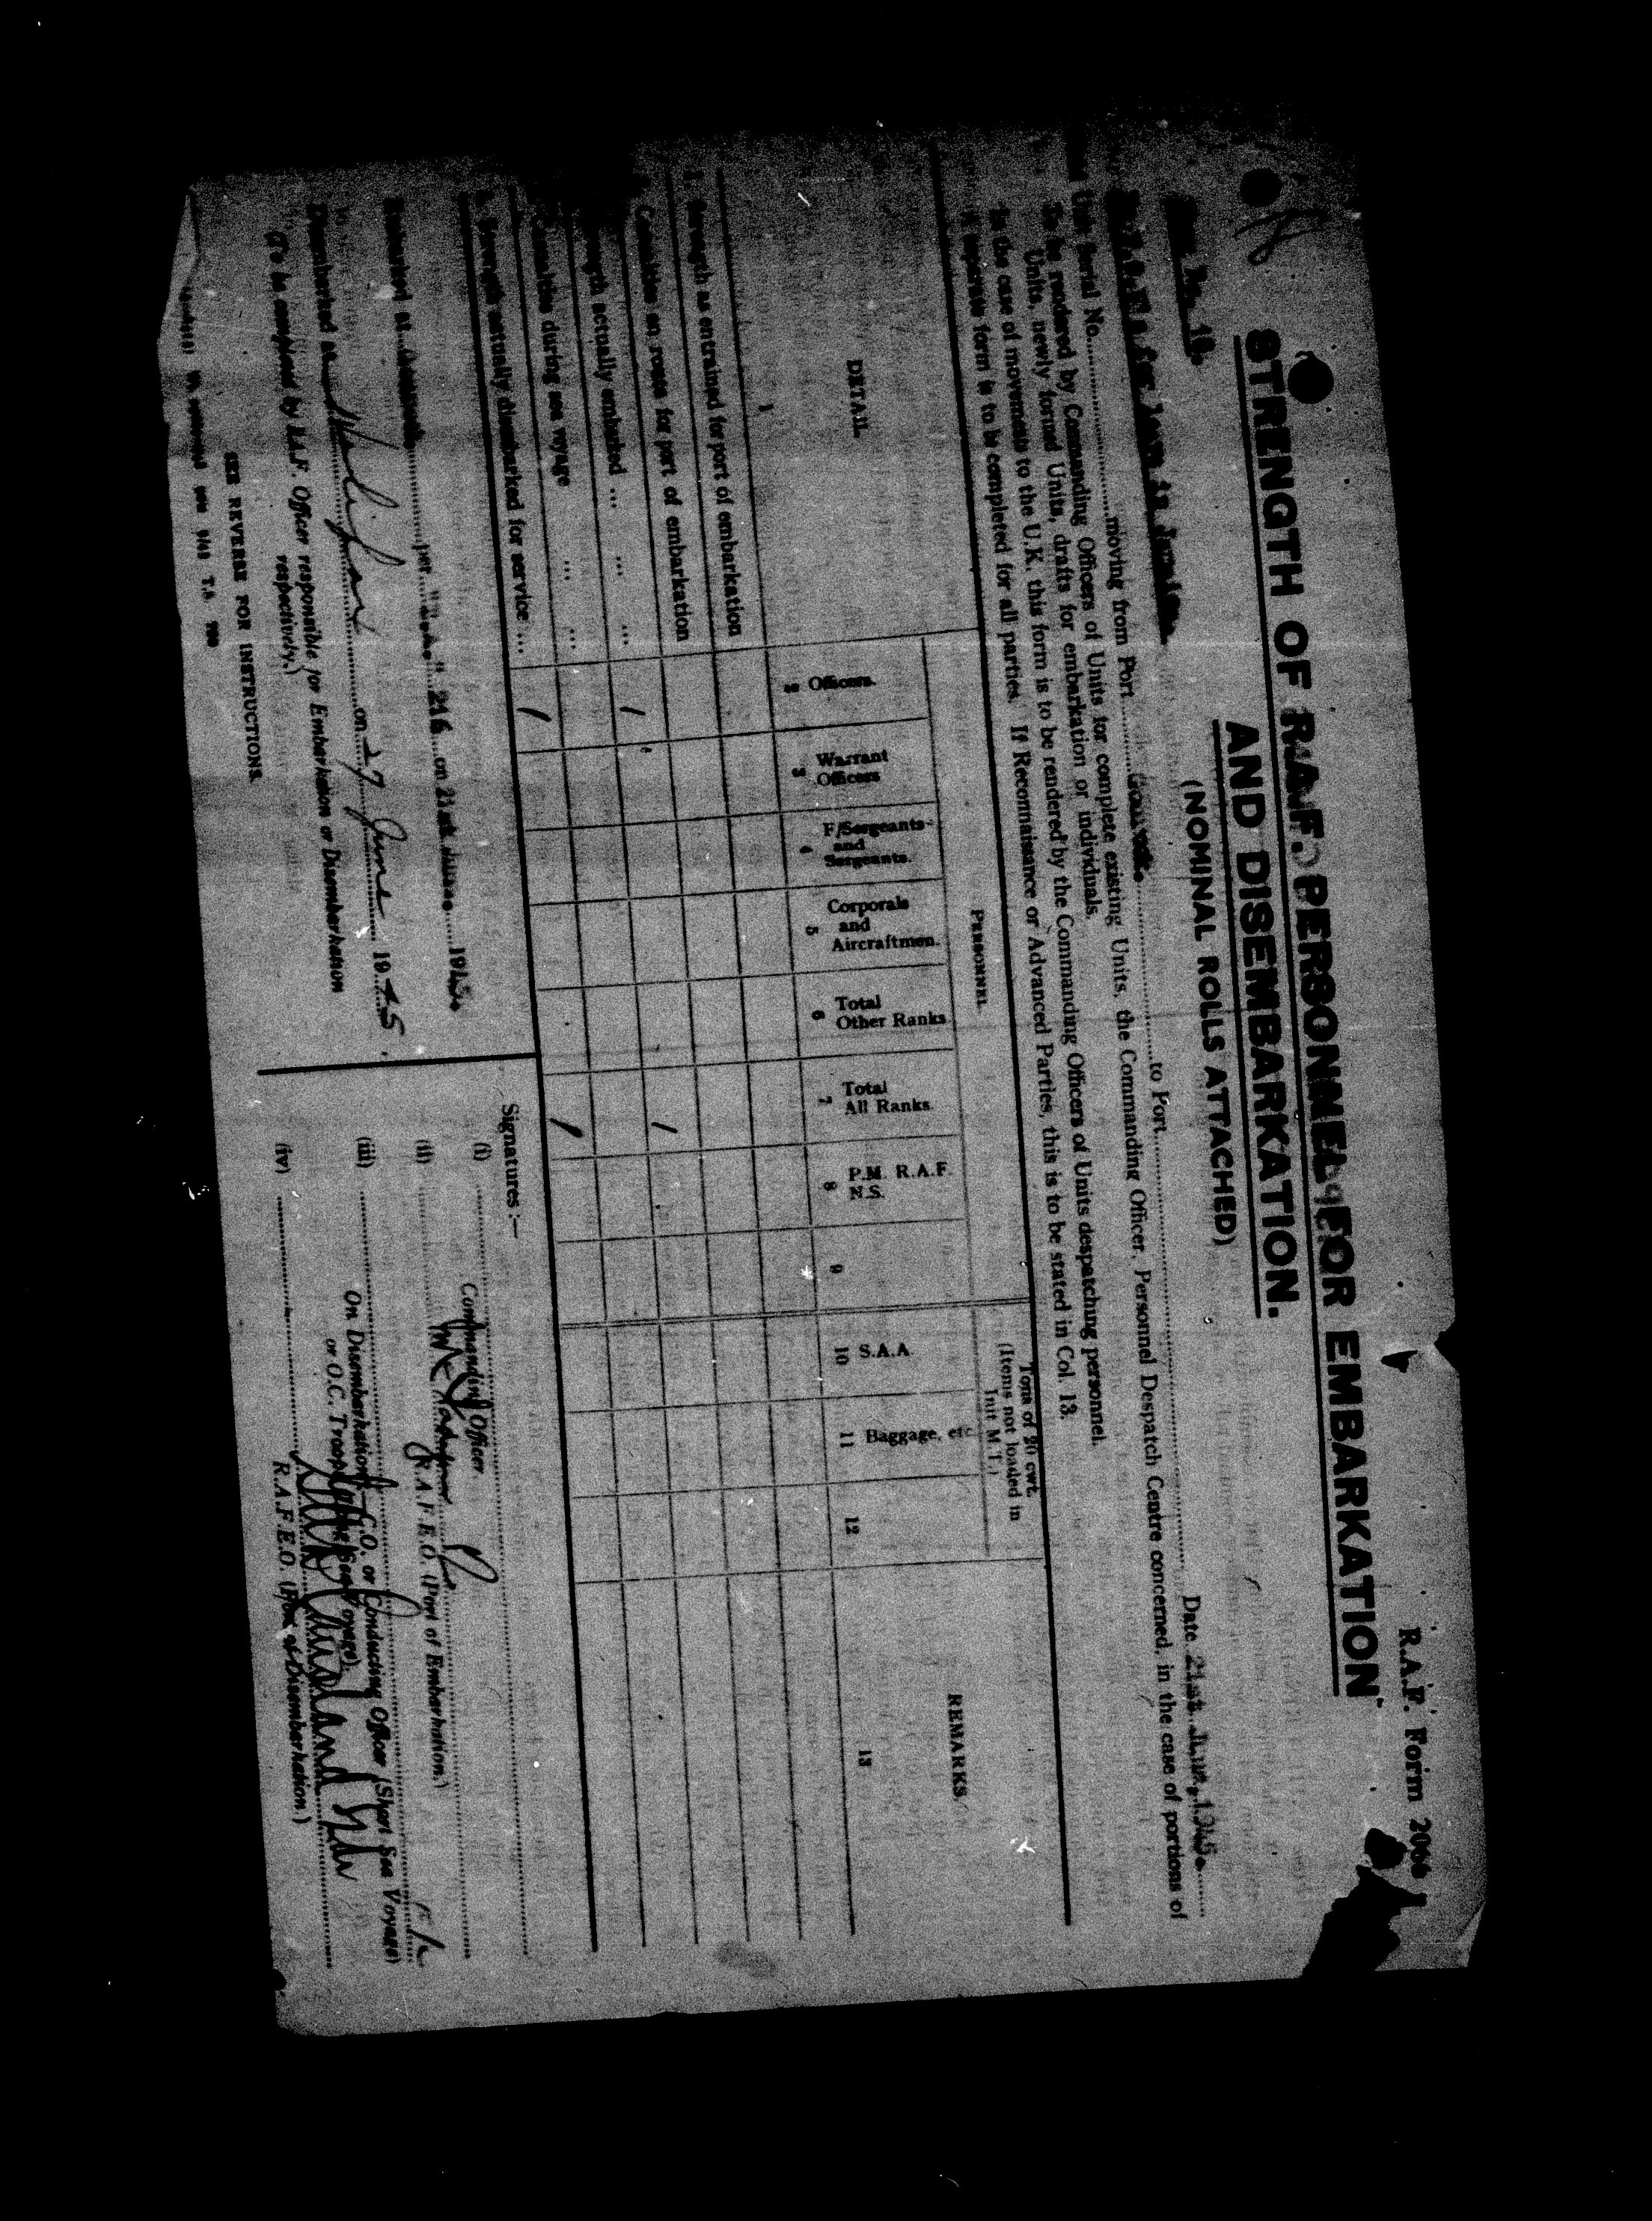 R.A.F. Form 2066
STRENGTH OF R.A.F. PERSONNEL FOR EMBARKATION
AND DISEMBARKATION.
(NOMINAL ROLLS ATTACHED)
Date 21st June, 1945.
Unit Serial No. moving from Port to Port
To be rendered by Commanding Officers of Units for complete existing Units, the Commanding Officer, Personnel Despatch Centre concerned, in the case of portions of
Units, newly formed Units, drafts for embarkation or individuals.
In the case of movements to the U.K. this form is to be rendered by the Commanding Officers of Units despatching personnel.
A separate form is to be completed for all parties. If Reconnaissance or Advanced Parties, this is to be stated in Col. 13.
DETAIL
PERSONNEL
Tons of 20 cwt.
(Items not loaded in
Unit M.T.)
REMARKS.
Officers.
Warrant
Officers
F/Sergeants
and
Sergeants.
Corporals
and
Aircraftmen.
Total
Other Ranks
Total
All Ranks
P.M. R.A.F.
N.S.
S.A.A.
Baggage, etc.
1 2 3 4 5 6 7 8 9 10 11 12 13
1. Strength as entrained for port of embarkation
Casualties en route for port of embarkation
Strength actually embarked ... ... ... 1 1
Casualties during sea voyage ... ...
Strength actually disembarked for service ... 1 1
Embarked at per 216 on 21st June. 1945.
Disembarked at on 27 June 1945.
(To be completed by R.A.F. Officer responsible for Embarkation or Disembarkation
respectively.)
SEE REVERSE FOR INSTRUCTIONS.
Signatures :—
(i)
Commanding Officer.
(ii)
R.A.F.E.O. (Port of Embarkation.)
(iii)
On Disembarkation C.O. or Conducting Officer (Short Sea Voyage)
or O.C. Troops (Long Sea Voyage).
(iv)
R.A.F.E.O. (Port of Disembarkation.)